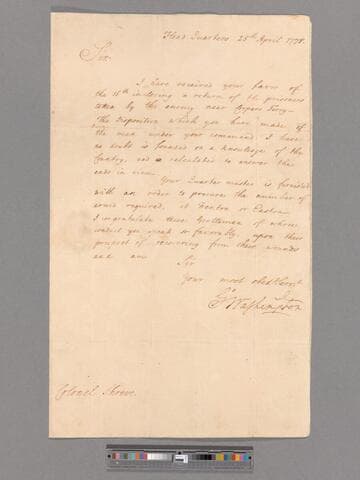 Head Quarters 25th April 1778.
Sir
I have received your favor of
the 15th inclosing a return of the prisoners
taken by the enemy near Coopers Ferry—
The disposition which you have made of
the men under your command I have
no doubt is founded on a knowledge of the
Country, and is calculated to answer the
ends in view.
Your Quarter master is furnished
with an order to procure the number of
arms required, at Trenton or Easton.
I congratulate those Gentlemen of whose
conduct you speak so favorably, upon their
prospect of recovering from their wounds
and am
Sir
Your most obedt Servt
Go Washington
Colonel Shreve.